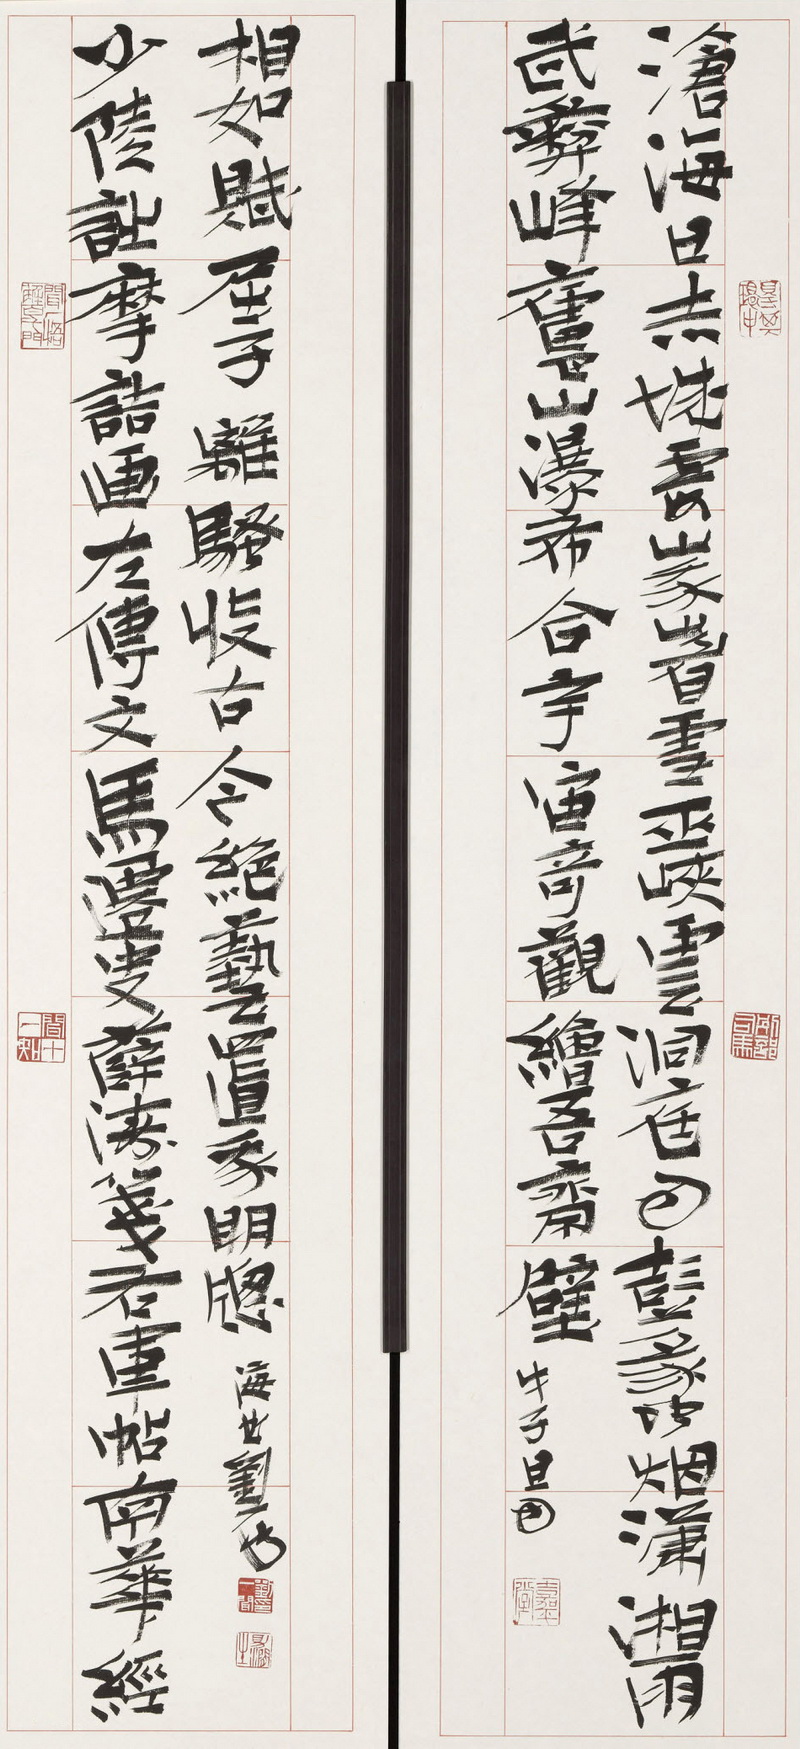 滄海日赤城霞峩眉雪巫峽雲洞庭月彭蠡烟瀟湘雨
武彝峰廬山瀑布合宇宙奇觀繪吾齋壁
少陵詩摩詰画左傳文馬遷史薛濤箋右軍帖南華經
相如賦屈子離騷收古今絕藝置我明牕
劉一聞